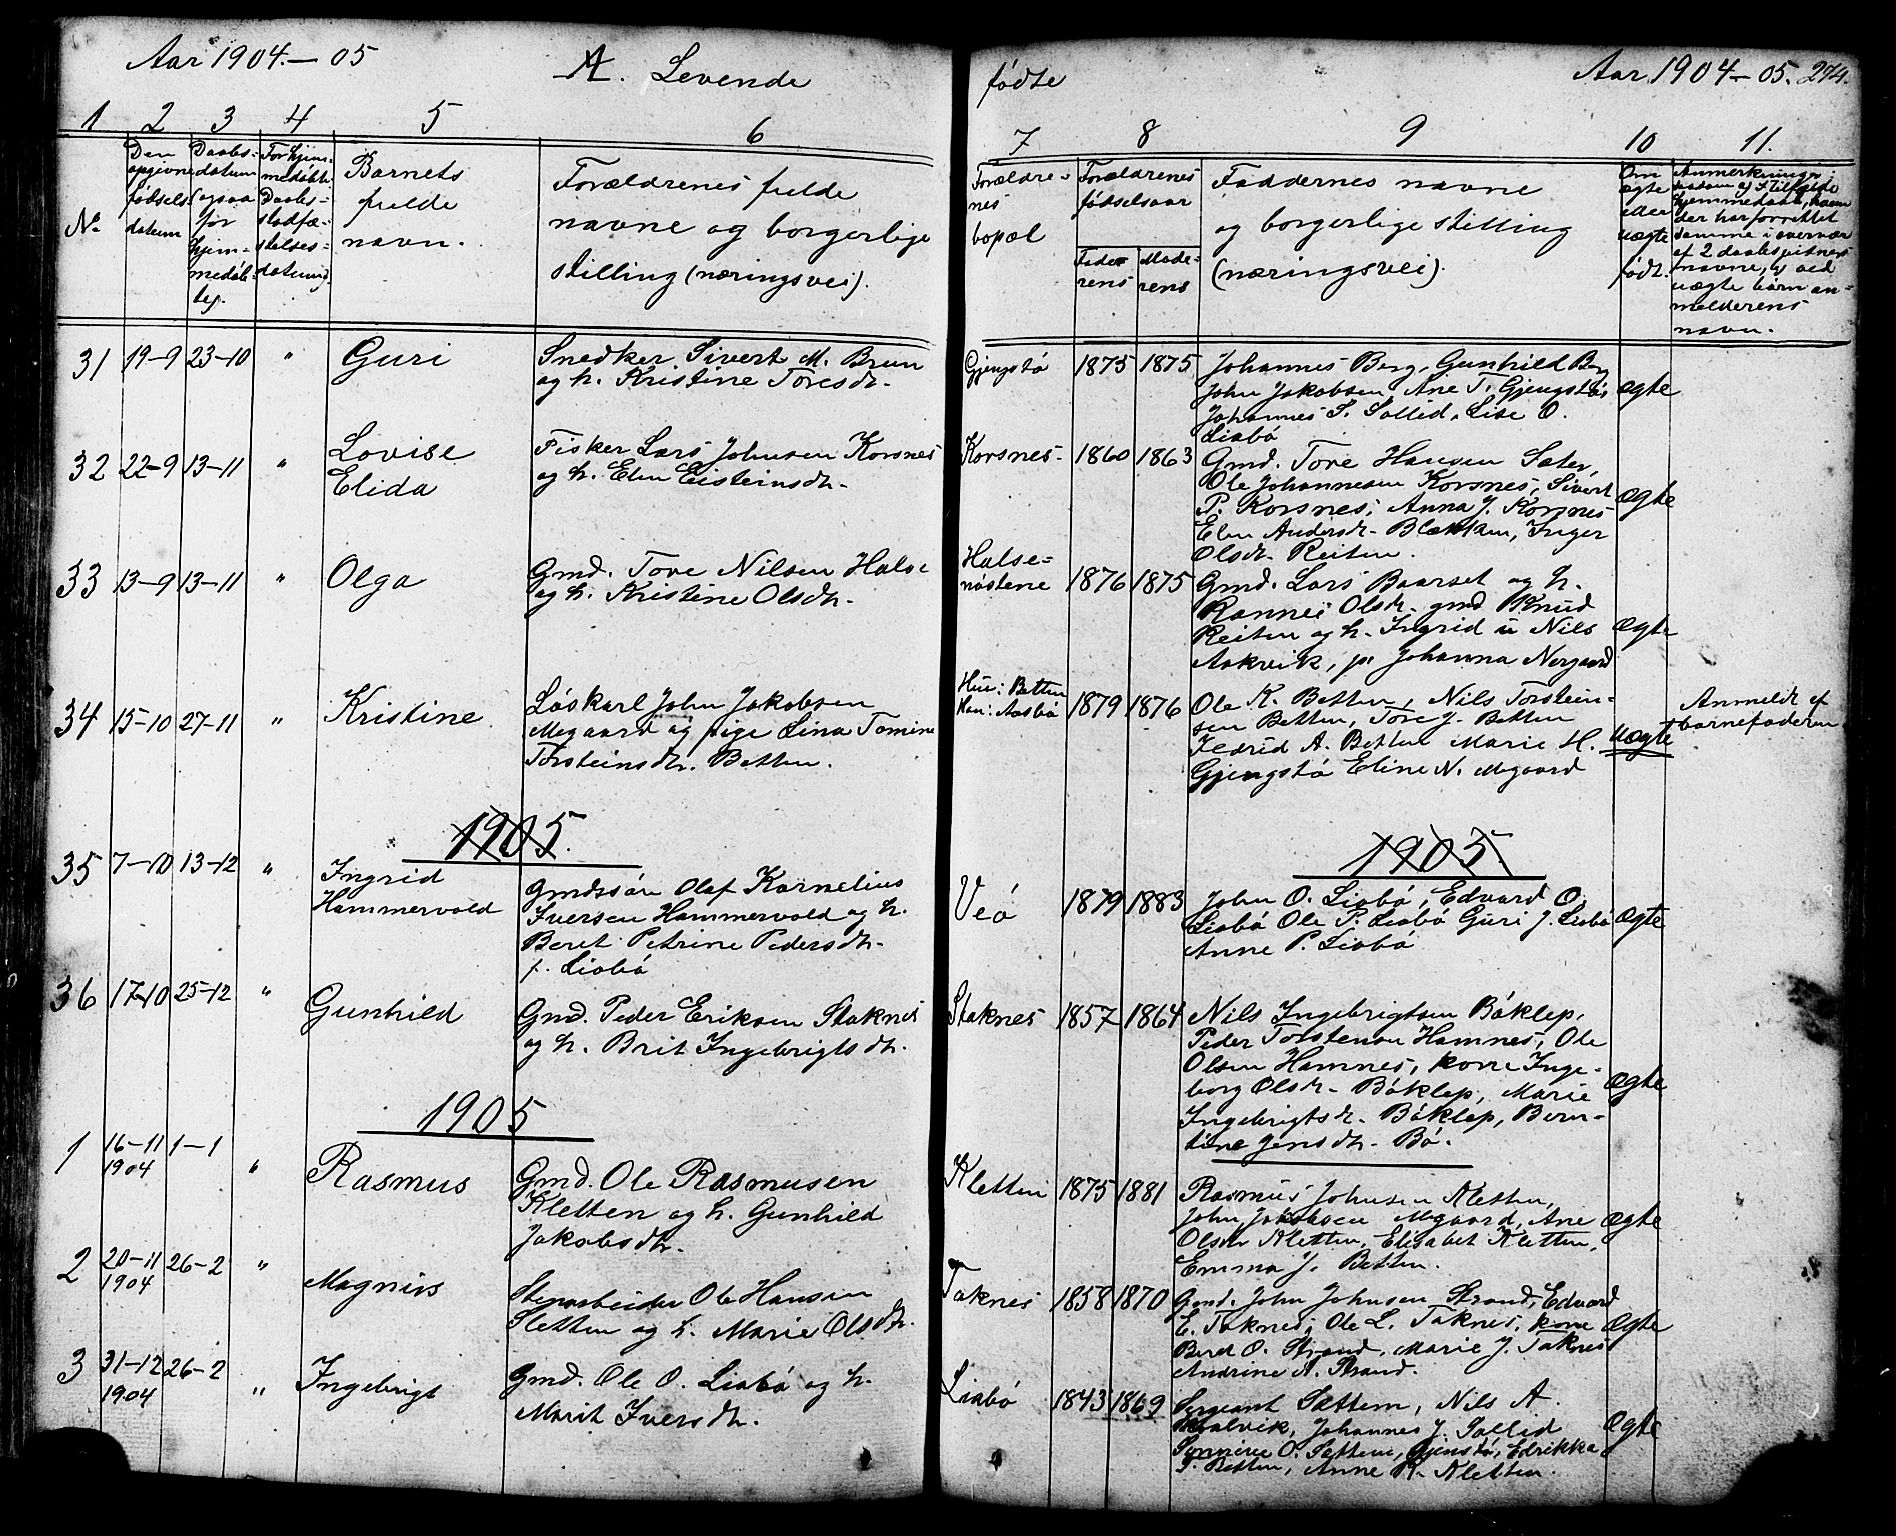 Aar 1904.—05
A. Levende
1 2 3 4 5 6
No.
Den opgivne fødselsdatum
Daabsdatum (ogsaa for hjemmedøbte).
For hjemmedøbte Daabsstadfæstelsesdatum.
Barnets
fulde
navn.
Forældrenes fulde
navne og borgerlige
stilling (næringsvei).
31 19-9 23-10 " Guri Snedker Sivert M. Brun
og h. Kristine Toresdr.
32 22-9 13-11 " Lovise Fisker Lars Johnsen Korsnes
Elida og h. Elen Eisteinsdr.
33 13-9 13-11 " Olga Gmd. Tore Nilsen Halse
og h. Kristine Olsdr.
34 15-10 27-11 " Kristine Løskarl John Jakobsen
Megaard og pige Lina Tomine
Torsteinsdr. Betten.
1905.
35 7-10 13-12 " Ingrid Gmdssøn Olaf Kornelius
Hammervold Iversen Hammervold og h.
Beret Petrine Pedersdr.
f. Liabø
36 17-10 25-12 " Gunhild Gmd. Peder Eriksen Staknes
og h. Brit Ingebrigtsdr.
1905
1 16-11 1904 1-1 " Rasmus Gmd. Ole Rasmusen
Kletten og h. Gunhild
Jakobsdr.
2 20-11 1904 26-2 " Magnus Stenarbeider Ole Hansen
Sletten og h. Marie Olsdr.
3 31-12 1904 26-2 " Ingebrigt Gmd. Ole O. Liabø og h.
Marit Iversdr.
fødte
Aar 1904—05. 274.
7 8 9 10 11.
Forældrenes
bopæl
Forældrenes
fødselsaar
Faderens
Moderens
Faddernes navne
og borgerlige stilling
(næringsvei).
Om
ægte
eller
uægte
født.
Anmerkninger
navn.
Gjengstø 1875 1875 Johannes Berg, Gunhild Berg
John Jakobsen, Ane T. Gjengstø,
Johannes S. Sollid, Lise O.
Liabø
Ægte
Korsnes 1860 1863 Gmd. Tore Hansen Sæter,
Ole Johannesen Korsnes, Sivert
P. Korsnes, Anna J. Korsnes
Elen Andersdr. Blekkan, Inger
Olsdr. Reiten.
Ægte
Halse-
nøstene 1876 1875 Gmd. Lars Baarset og h.
Rannei Olsdr. gmd Knud
Reiten og h. Ingrid u Nils
Aakvik, pi Johanna Norgaard
Ægte
Hun: Betten
Han: Aasbø 1879 1876 Ole K. Betten, Nils Torstein-
sen Betten, Tore J. Betten
A. Betten Marie H.
Gjengstø Eline N. Megaard
Uægte
Anmeldt af
barnefaderen
1905.
Veø 1879 1883 John O. Liabø, Edvard O.
Liabø Ole P. Liabø Guri J. Liabø
Anne P. Liabø
Ægte
Staknes 1857 1864 Nils Ingebrigtsen Bøklep,
Peder Torstensen Hamnes, Ole
Olsen Hamnes, kone Inge-
borg Olsdr. Bøklep, Marie
Ingebrigtsdr. Bøklep, Bern-
tine Jensdr. Bø.
Ægte
Kletten 1875 1881 Rasmus Johnsen Kletten,
John Jakobsen Megaard, Ane
Olsdr Kletten, Elisabet Kletten,
Emma J. Betten.
Ægte
Taknes 1858 1870 Gmd. John Johnsen Strand, Edvard
E. Taknes, Ole L. Taknes, kone
Beret O. Strand, Marie J. Taknes
Andrine A. Strand.
Ægte
Liabø 1843 1869 Sergeant Sættem, Nils A.
Hvalvik, Johannes J. Sollid
O. Sættem, Gjenstø, Edrikka
T. Betten, Anne R. Kletten.
Ægte